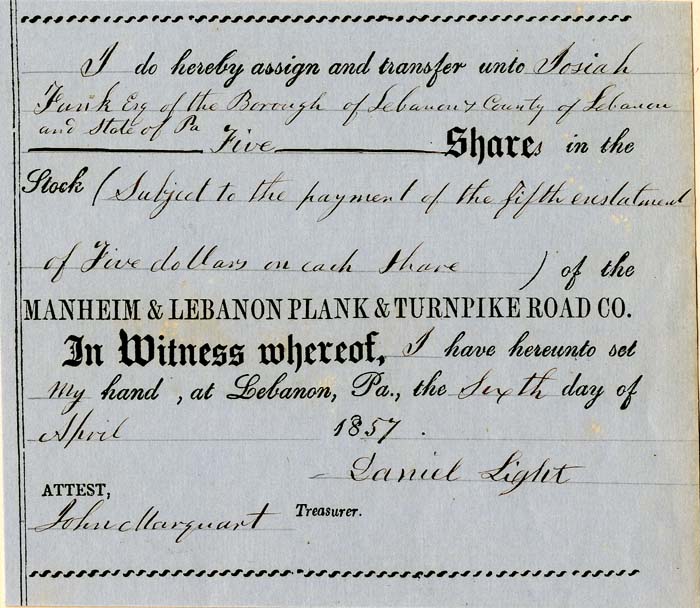 I do hereby assign and transfer unto Josiah
Funk Esq of the Borough of Lebanon & County of Lebanon
and State of Pa Five Shares in the
Stock (Subject to the payment of the fifth enstatment
of Five dollars on each share ) of the
MANHEIM & LEBANON PLANK & TURNPIKE ROAD CO.
In Witness whereof, I have hereunto set
my hand, at Lebanon, Pa., the Sixth day of
April 1857.
Daniel Light
ATTEST,
John Marquart Treasurer.